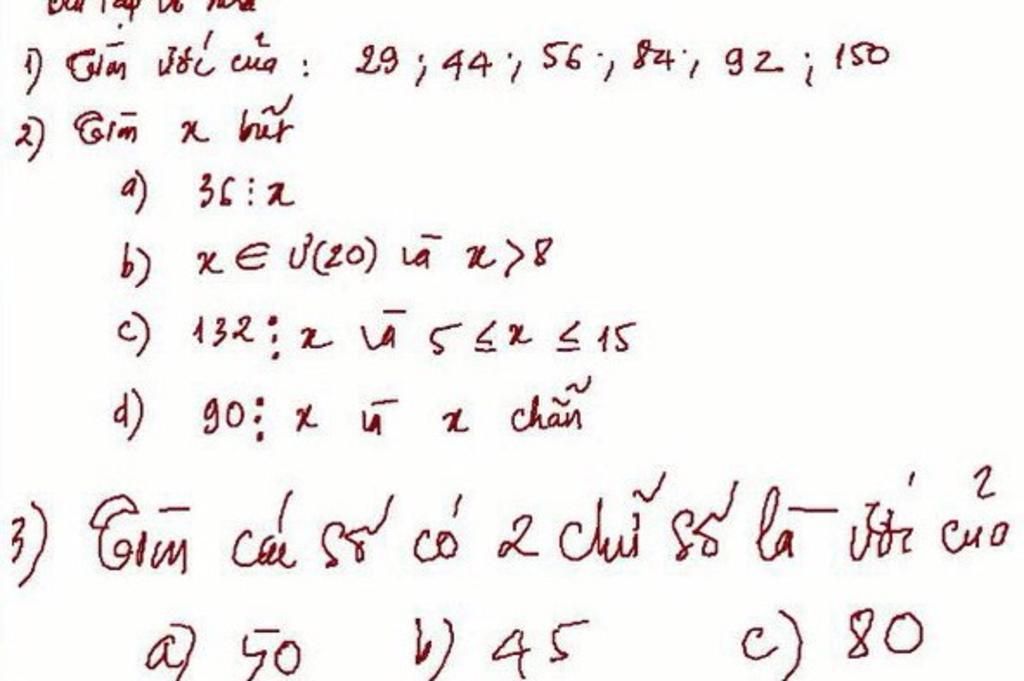 Bài tập về nhà
1) Tìm ước của : 29 ; 44 ; 56 ; 84 ; 92 ; 150
2) Tìm x biết
a) 36 ⋮ x
b) x ∈ Ư(20) và x > 8
c) 132 ⋮ x và 5 ≤ x ≤ 15
d) 90 ⋮ x và x chẵn
3) Tìm các số có 2 chữ số là ước của
a) 50 b) 45 c) 80